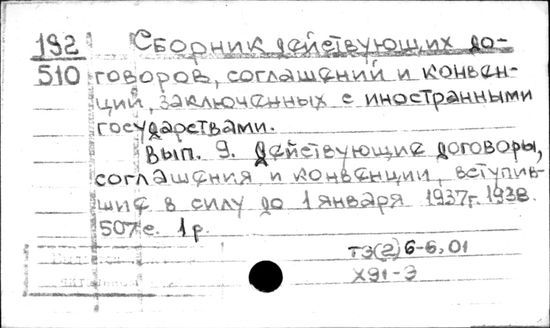 192 Сборник действующих до-
510 говоров, соглашений и конвен-
ций, заключенных с иностранными
государствами.
Вып. 9. Действующие договоры,
соглашения и конвенции, вступив-
шие в силу до 1 января 1937г. 1938.
507с. 1р.
ТЗ(2)6-6,01
Х91-З